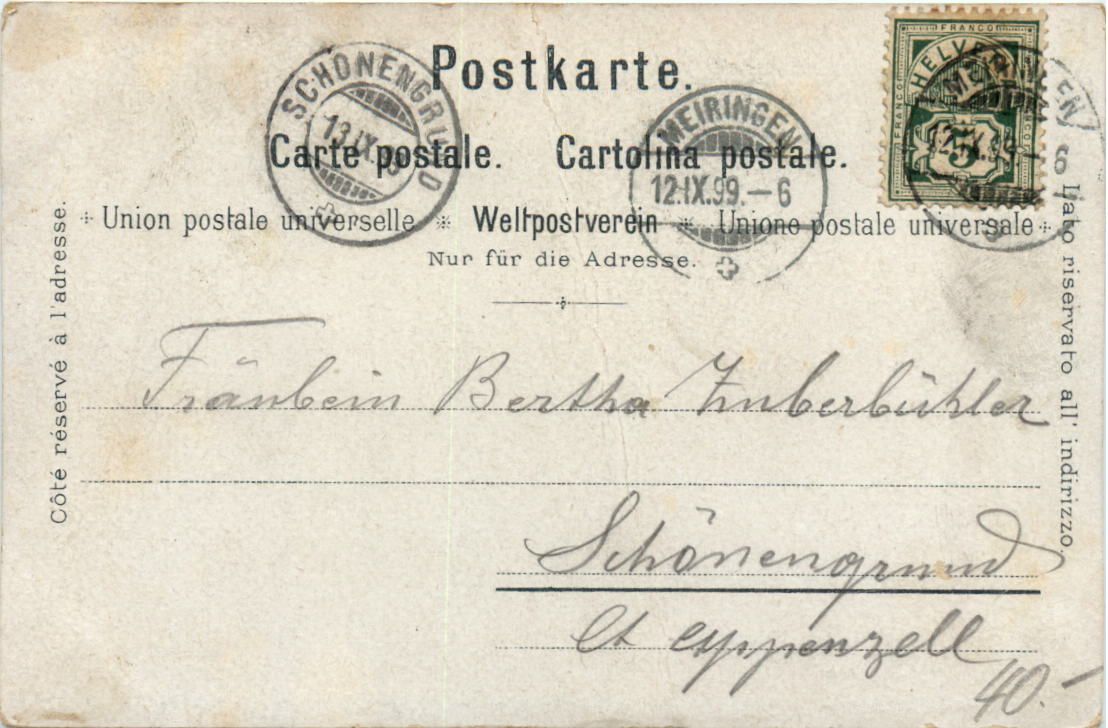 FRANCO
HELVETIA
FRANCO
5
Postkarte.
SCHÖNENGRUND
13.IX.9
MEIRINGEN
12.IX.99.–6
12.IX.99.–6
Carte postale. Cartolina postale.
Union postale universelle Weltpostverein Unione postale universale
Nur für die Adresse.
Côté réservé à l'adresse.
Lato riservato all' indirizzo.
Fräulein Bertha Zuberbühler
Schönengrund
Ct Appenzell
40.–